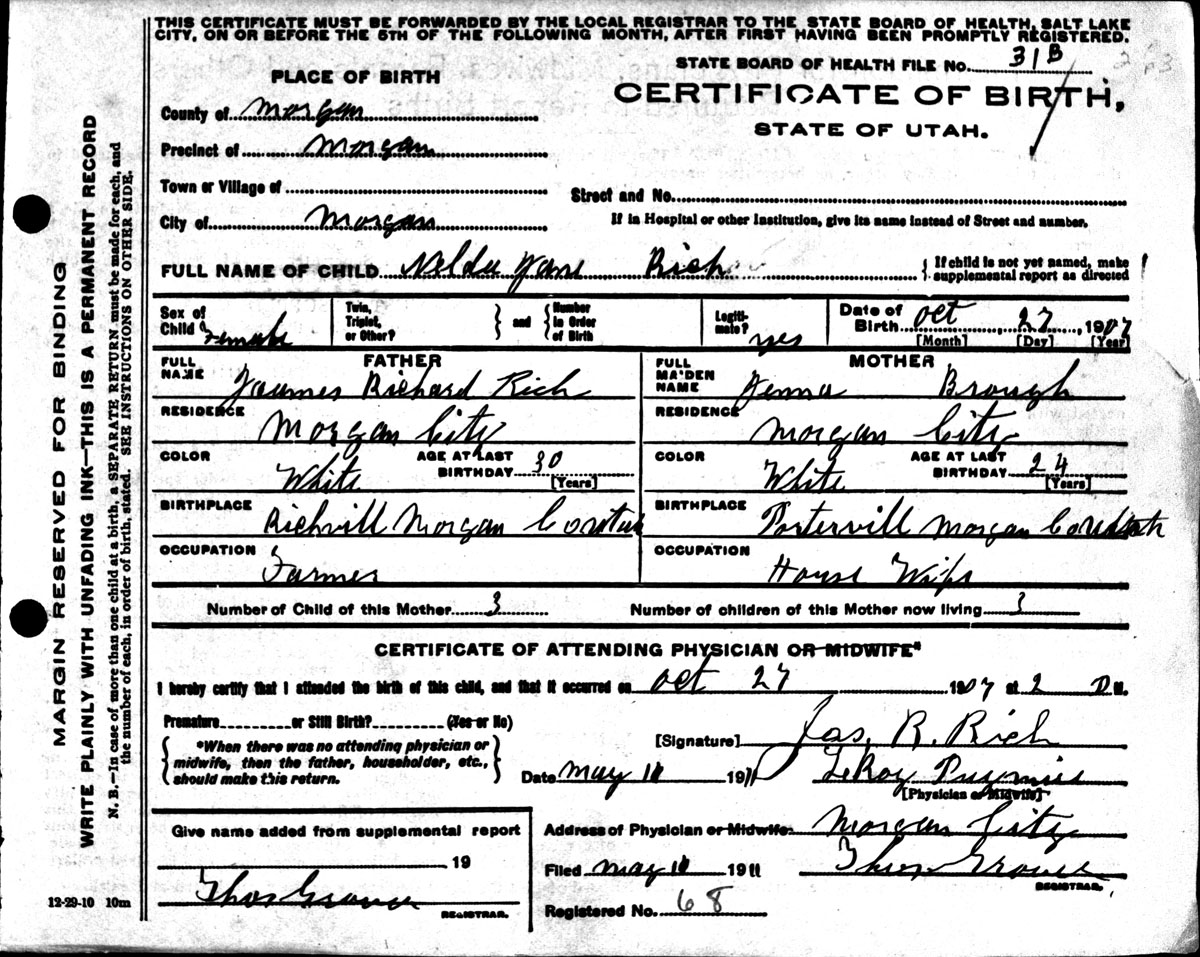 THIS CERTIFICATE MUST BE FORWARDED BY THE LOCAL REGISTRAR TO THE STATE BOARD OF HEALTH, SALT LAKE
CITY, ON OR BEFORE THE 5TH OF THE FOLLOWING MONTH, AFTER FIRST HAVING BEEN PROMPTLY REGISTERED.
STATE BOARD OF HEALTH FILE No. 31B
PLACE OF BIRTH
CERTIFICATE OF BIRTH,
STATE OF UTAH.
County of Morgan
Precinct of Morgan
Town or Village of
Street and No.
City of Morgan
If in Hospital or other Institution, give its name instead of Street and number.
FULL NAME OF CHILD Nelda Jane Rich
{ If child is not yet named, make
supplemental report as directed
Sex of Child Female
Twin, Triplet, or Other? } and { Number in Order of Birth
Legiti-mate? yes
Date of Birth Oct 27, 1907
[Month] [Day] [Year]
FATHER
MOTHER
FULL NAME Jaumes Richard Rich
FULL MAIDEN NAME Jenna Brough
RESIDENCE Morgan City
RESIDENCE Morgan City
COLOR White AGE AT LAST BIRTHDAY 30 [Years]
COLOR White AGE AT LAST BIRTHDAY 24 [Years]
BIRTHPLACE Richvill Morgan Co Utah
BIRTHPLACE Portervill Morgan Co Utah
OCCUPATION Farmer
OCCUPATION House Wife
Number of Child of this Mother 3
Number of children of this Mother now living 3
CERTIFICATE OF ATTENDING PHYSICIAN OR MIDWIFE*
I hereby certify that I attended the birth of this child, and that it occurred on Oct 27 1907 at 2 P M.
Premature or Still Birth? (Yes or No)
{ *When there was no attending physician or
midwife, then the father, householder, etc.,
should make this return. }
[Signature] Jas. R. Rich
Date May 11 1911
LeRoy Pugmire
[Physician or Midwife]
Give name added from supplemental report
19
Thos Grover
REGISTRAR.
Address of Physician or Midwife Morgan City
Filed May 11 1911 Thos Grover
REGISTRAR.
Registered No. 68
12-29-10 10m
MARGIN RESERVED FOR BINDING
WRITE PLAINLY WITH UNFADING INK—THIS IS A PERMANENT RECORD
N. B.—In case of more than one child at a birth, a SEPARATE RETURN must be made for each, and
the number of each, in order of birth, stated. SEE INSTRUCTIONS ON OTHER SIDE.